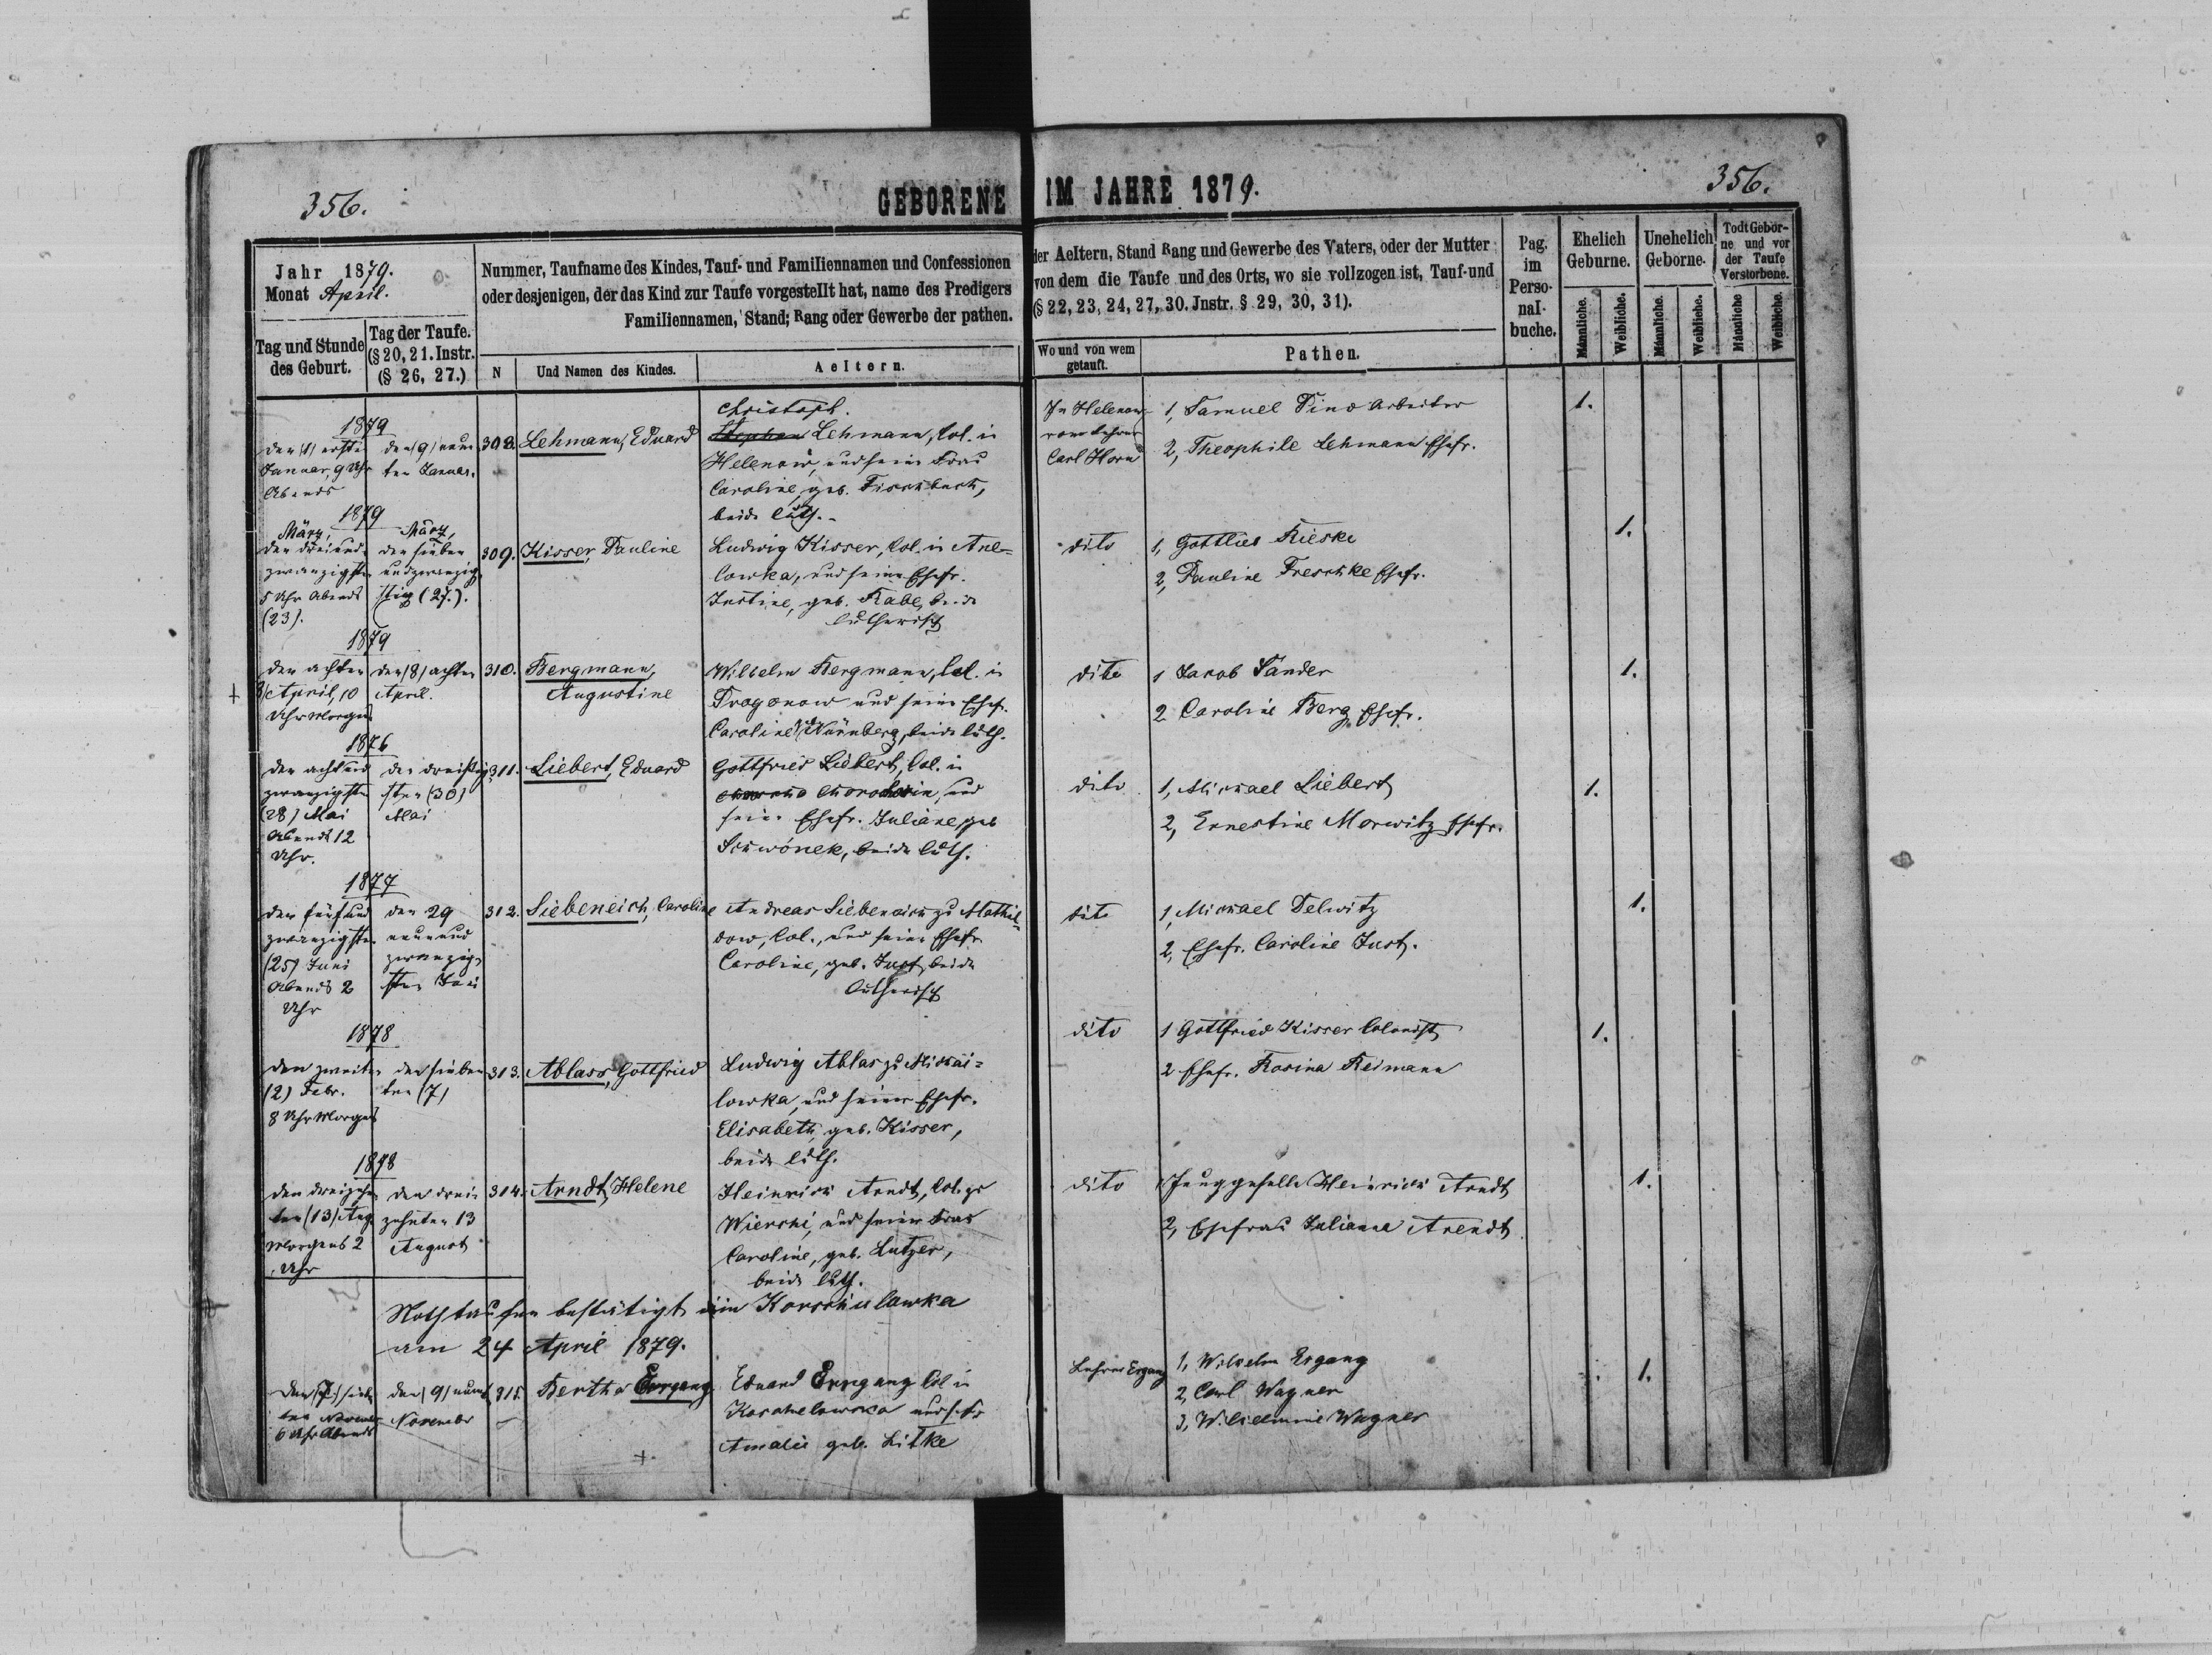 356.
GEBORENE IM JAHRE 1879.
356.
Jahr 1879.
Monat April.
Tag und Stunde des Geburt.
Tag der Taufe. (§ 20, 21. Instr. (§ 26, 27.)
Nummer, Taufname des Kindes, Tauf- und Familiennamen und Confessionen
oder desjenigen, der das Kind zur Taufe vorgestellt hat, name des Predigers
Familiennamen, Stand; Rang oder Gewerbe der pathen.
N
Und Namen des Kindes.
Aeltern.
der Aeltern, Stand Rang und Gewerbe des Vaters, oder der Mutter
von dem die Taufe und des Orts, wo sie vollzogen ist, Tauf-und
(§ 22, 23, 24, 27, 30. Jnstr. § 29, 30, 31).
Wo und von wem getauft.
Pathen.
Pag. im Perso- nal- buche.
Ehelich Geburne.
Unehelich Geborne.
Todt Gebor- ne und vor der Taufe Verstorbene.
Männliche.
Weibliche.
Männliche.
Weibliche.
Männliche
Weibliche.
1879
den (1) ersten
Januar, 9 Uhr
Abends
den (9) neun
ten Januar.
308.
Lehmann, Eduard
Christoph.
Stephan Lehmann, Col. in
Helenow, und seine Frau
Caroline, geb. Fischbuch,
beide luth.
In Helenow
vom Lehrer
Carl Horn
1, Samuel Pino Arbeiter
2, Theophile Lehmann Ehefr.
1.
1879
März,
den dreiund
zwanzigsten
5 Uhr Abends
(23).
März,
den sieben
undzwanzig
stig (27.).
309.
Kisser, Pauline
Ludwig Kisser, Col. in Ane-
lowka, und seine Ehefr.
Justine, geb. Rabe, beide
lutherisch
dito
1, Gottlieb Rieske
2, Pauline Freschke Ehefr.
1.
1879
den achten
8/ April, 10
Uhr Morgens
den (8) achten
April.
310.
Bergmann,
Augustine
Wilhelm Bergmann, Col. in
Dragonow und seine Ehefr.
Caroline Nürnberg, beide luth.
dito
1 Jacob Sander
2 Caroline Berg Ehefr.
1.
1876
den achtund
zwanzigsten
(28) Mai
Abends 12
Uhr.
den dreißig
sten (30)
Mai
311.
Liebert, Eduard
Gottfried Liebert, Col. in
und
seine Ehefr. Juliane, geb
Schwónek, beide luth.
dito
1, Michael Liebert
2, Ernestine Morwitz Ehefr.
1.
1877
den fünfund
zwanzigsten
(25) Juni
Abends 2
Uhr
den 29
neunund
zwanzig-
sten Juni
312.
Liebeneich, Caroline
Andreas Liebeneich zu Mathil-
dow, Col., und seine Ehefr
Caroline, geb. Just, beide
lutherisch
dito
1, Michael Delwitz
2, Ehefr. Caroline Just.
1.
1878
den zweiten
(2) Febr.
8 Uhr Morgens
den sieben
ten (7)
313.
Ablass, Gottfried
Ludwig Ablas zu Michai-
lowka, und seiner Ehefr.
Elisabeth, geb. Kisser,
beide luth.
dito
1 Gottfried Kisser Colonist
2 Ehefr. Rosina Reimann
1.
1878
den dreizehn
ten (13) Aug
Morgens 2
Uhr
den drei-
zehnten 13
August
314.
Arndt, Helene
Heinrich Arndt, Col. zu
Wierski, und seiner Frau
Caroline, geb. Lutzer,
beide luth.
dito
1 Junggeselle Heinrich Arndt
2, Ehefrau Julianna Arendt
1.
Nothtaufen bestätigt in Korschulowka
am 24 April 1879.
den (7) sieben
ten November
6 Uhr Abends
den (9) neunt
November
315.
Bertha Ergang
Eduard Ergang Col in
Amalie geb. Litke
Lehrer Ergang
1, Wilhelm Ergang
2, Carl Wagner
3, Wilhelmine Wagner
1.